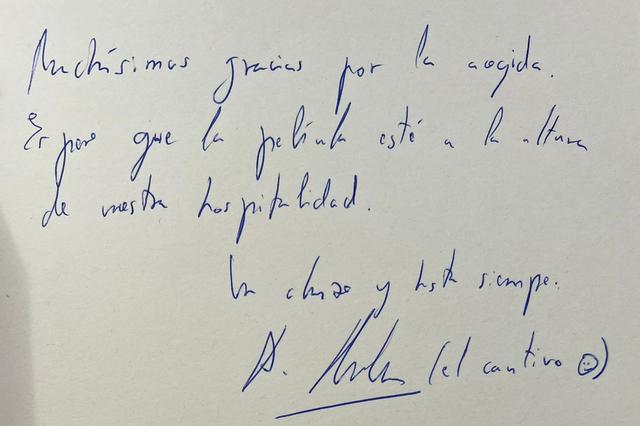 Muchísimas gracias por la acogida.
Espero que la película esté a la altura
de vuestra hospitalidad.
Un abrazo y hasta siempre.
A. (el cautivo ☺)